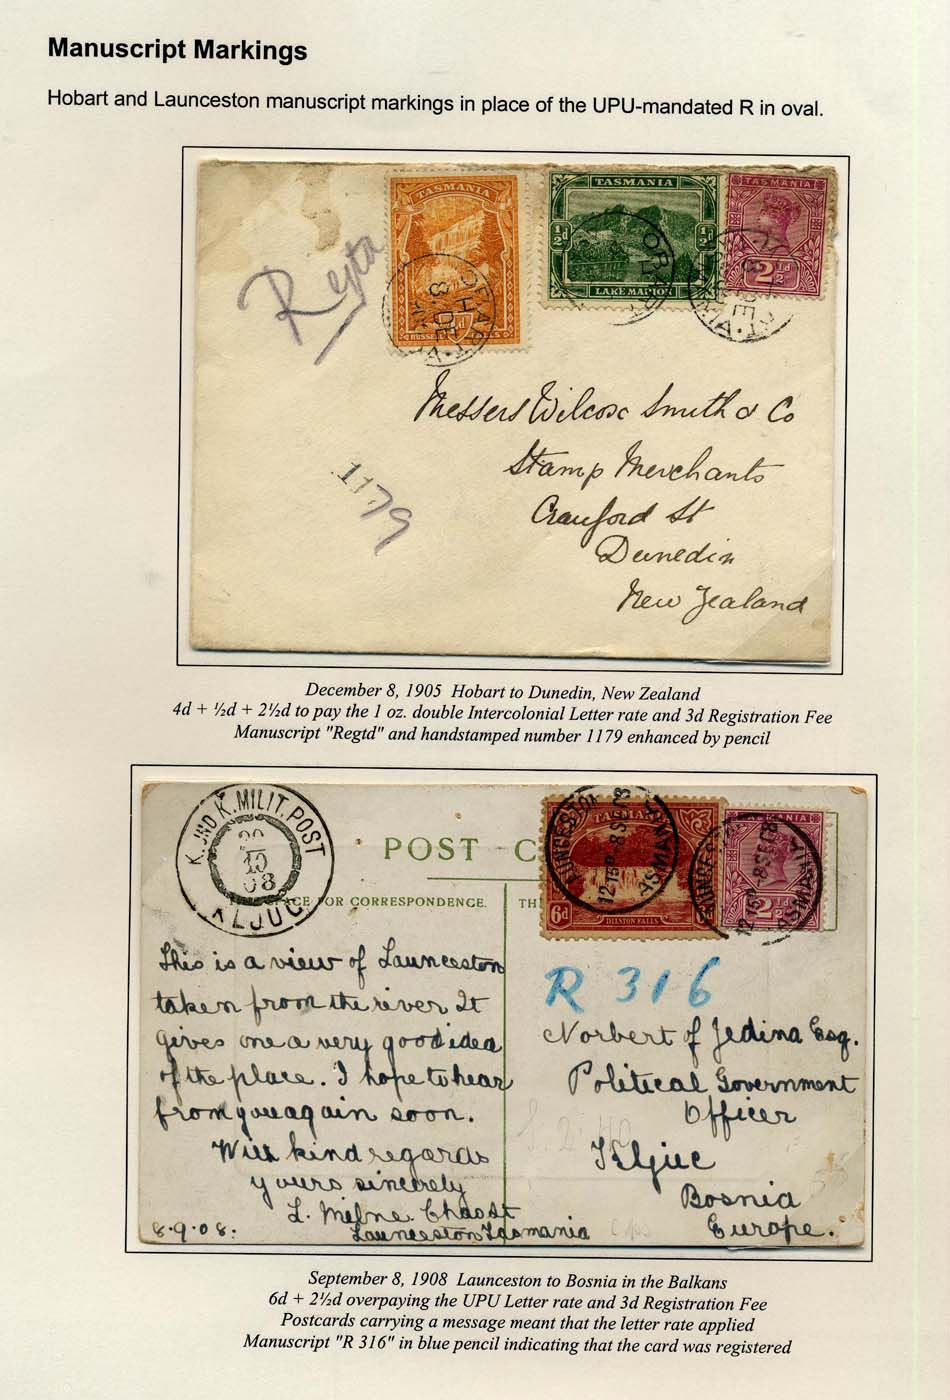 Manuscript Markings
Hobart and Launceston manuscript markings in place of the UPU-mandated R in oval.
Regtd
TASMANIA
d
RUSSELL FALLS
TASMANIA
½d ½d
LAKE MARION
TASMANIA
2½d
HOBART
8 DE
Messers Wilcox Smith & Co
Stamp Merchants
Crauford St
Dunedin
New Zealand
1179
December 8, 1905 Hobart to Dunedin, New Zealand
4d + ½d + 2½d to pay the 1 oz. double Intercolonial Letter rate and 3d Registration Fee
Manuscript "Regtd" and handstamped number 1179 enhanced by pencil
K. UND K. MILIT. POST
10
08
KLJUC
POST C
SPACE FOR CORRESPONDENCE.
TH
TASMANIA
6d
DILSTON FALLS
TASMANIA
2½d
LAUNCESTON
12 15P - 8 SE 08
TASMANIA
LAUNCESTON
12 15P - 8 SE 08
TASMANIA
This is a view of Launceston
taken from the river. It
gives one a very good idea
of the place. I hope to hear
from you again soon.
With kind regards
yours sincerely
L. Milne
Launceston Tasmania
8.9.08.
R 316
Norbert of Jedina Esq.
Political Government
Officer
Kljuc
Bosnia
Europe.
September 8, 1908 Launceston to Bosnia in the Balkans
6d + 2½d overpaying the UPU Letter rate and 3d Registration Fee
Postcards carrying a message meant that the letter rate applied
Manuscript "R 316" in blue pencil indicating that the card was registered